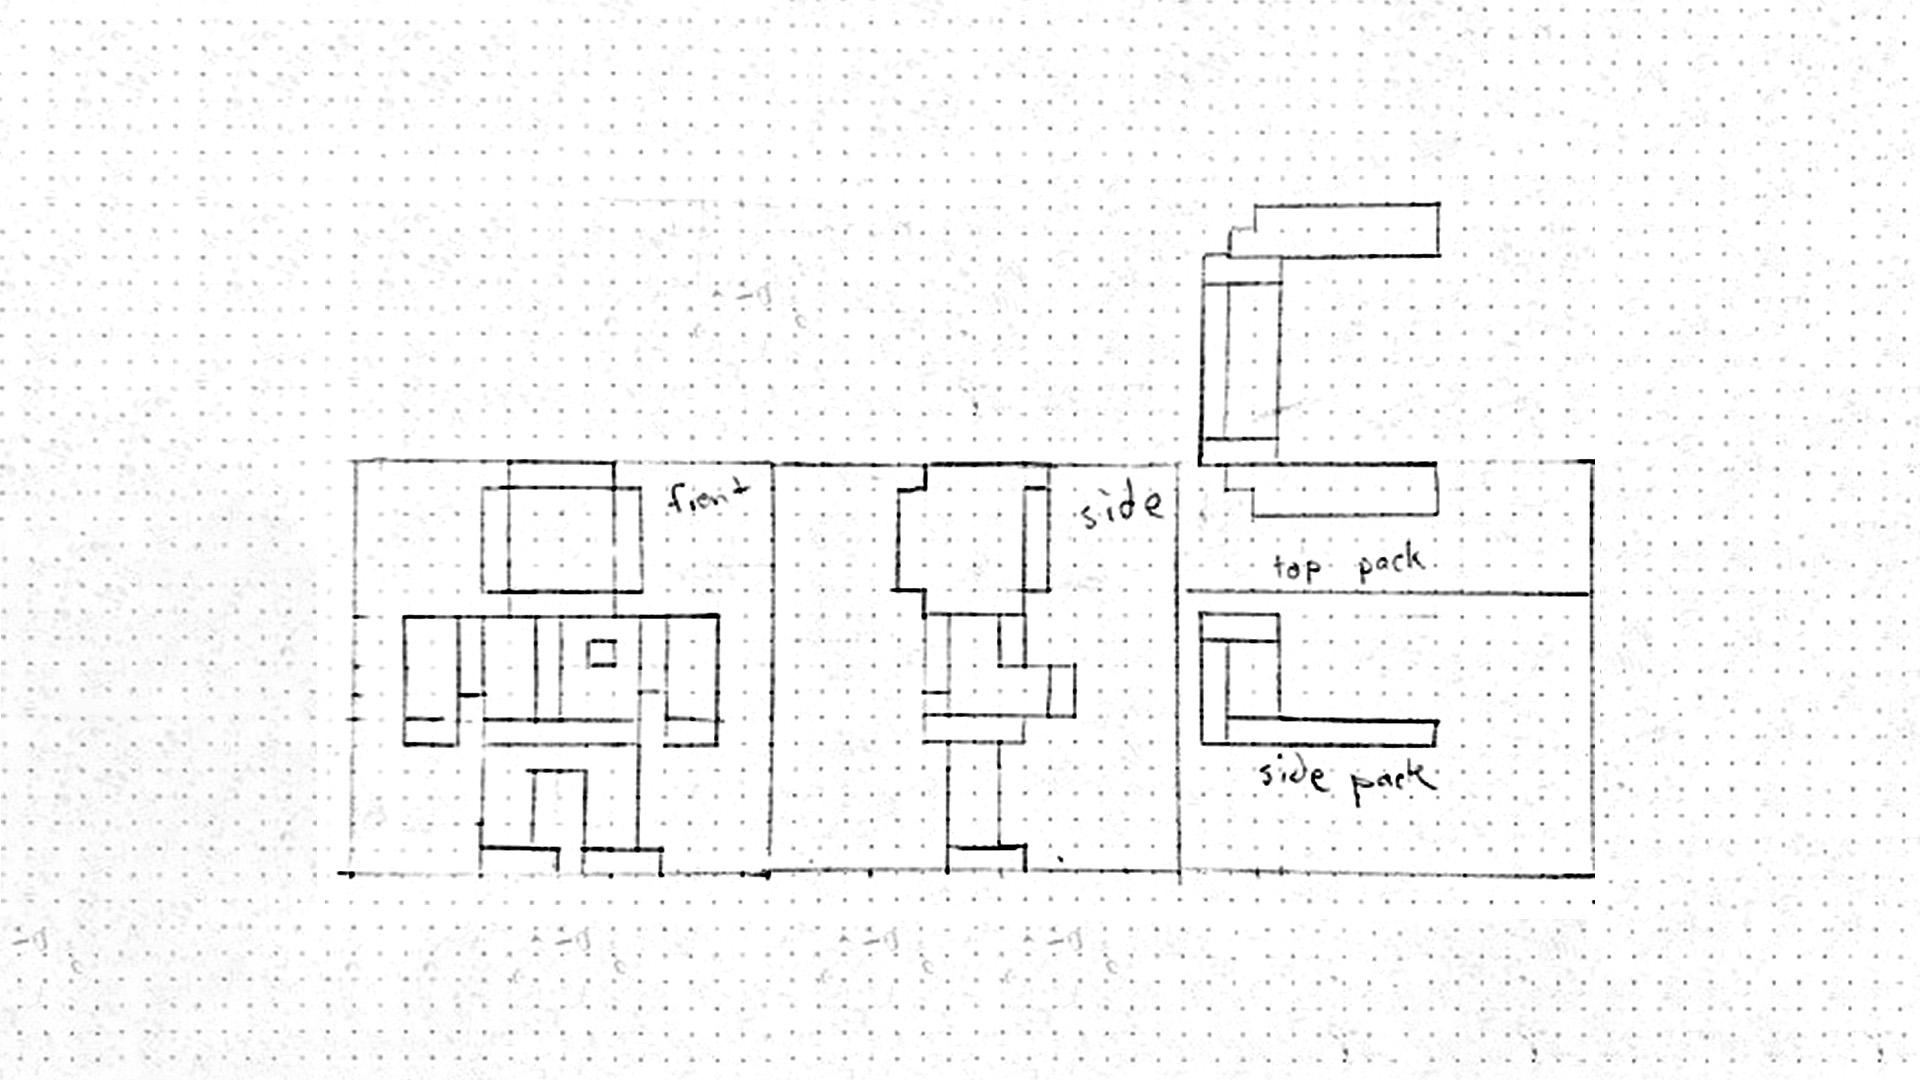 front
side
top pack
side pack